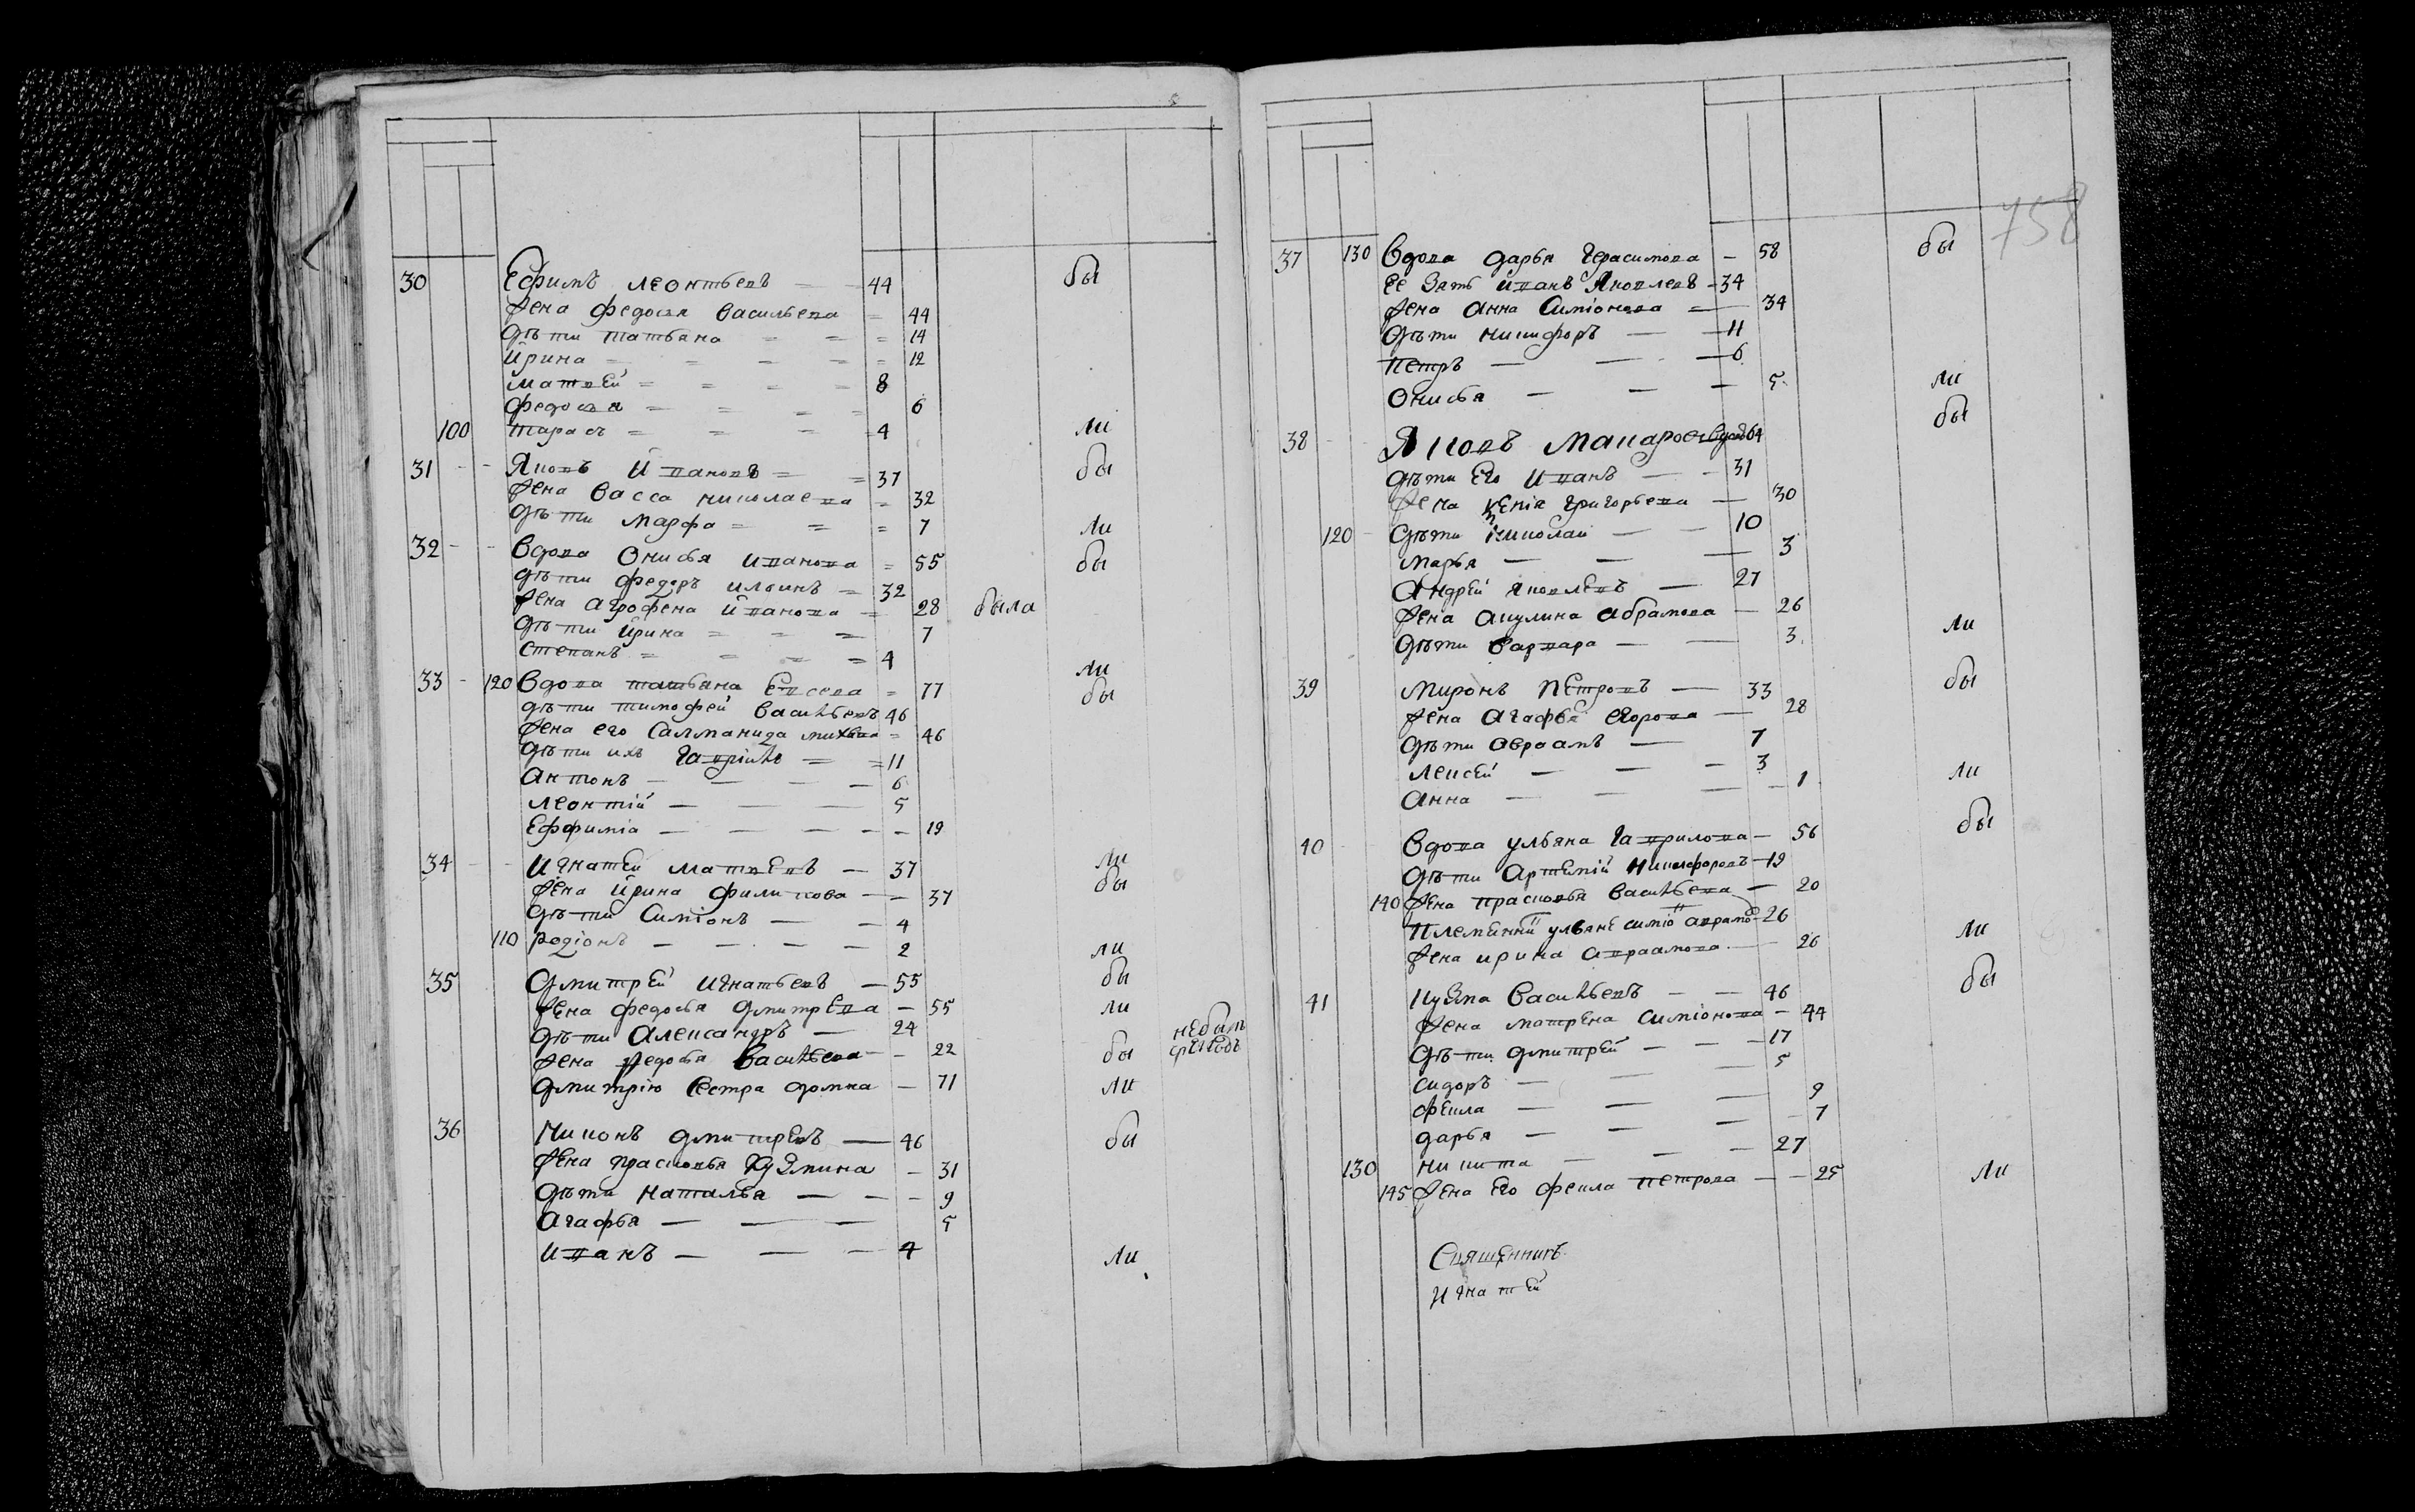 30 Ефимъ Леонтьевъ — 44 бы
жена Федосья Васильева = 44
дѣти Татьяна = = = 14
Ирина = = = = 12
Матвей = = = = 8
Федосья = = = = 6
100 Тарасъ = = = = 4 ли
31 - - Яковъ Ивановъ = = 37 бы
жена Васса Николаева = 32
дѣти Марфа = = = 7 ли
32 - - Вдова Онисья Иванова = 55 бы
дѣти Федоръ Ильинъ = 32
жена Агрофена Иванова = 28 была
дѣти Ирина = = = 7
Степанъ = = = = 4 ли
33 - 120 Вдова Татьяна Евсева = 77 бы
дѣти Тимофей Васильевъ 46
жена его Салманида = 46
дѣти ихъ Гаврилъ = = 11
Антонъ — — — 6
Леонтій — — — 5
Ефимія — — — — 19 ли
34 - - Игнатей Матвеевъ — 37 бы
жена Ирина Филипова — — 37
дѣти Симіонъ — — 4
110 Родіонъ — — — — 2 ли
35 Дмитрей Игнатьевъ — 55 бы
жена Федосья Дмитрева — 55 ли
дѣти Александръ — 24
жена Федосья Васильева — — 22 бы
Дмитрію сестра Домна — 71 ли
36 Никонъ Дмитревъ — 46 бы
жена Прасковья Кузмина — 31
дѣти Наталья — — — 9
Агафья — — — 5
Иванъ — — — 4 ли
758
37 130 Вдова Дарья Герасимова — 58 бы
Ее зять Иванъ Яковлевъ — 34
жена Анна Симіонова — — 34
дѣти Никифоръ — — 11
Петръ — — — 6
Онисья — — — 5 ли
38 - - Яковъ Макаровъ 64 бы
дѣти Его Иванъ — — 31
жена Ксенія Григорьева — 30
120 - дѣти Николай — — 10
Марья — — — 3
Андрей Яковлевъ — 27
жена Акулина Абрамова — 26
дѣти Варвара — — 3 ли
39 Миронъ Петровъ — 33 бы
жена Агафья Егорова — 28
дѣти Авраамъ — 7
Лексей — — — 3
Анна — — — — 1 ли
40 Вдова Ульяна Гаврилова — 56 бы
дѣти Артемій Никифоровъ — 19
140 жена Прасковья Васильева — 20
Племянни Ульяне Симіо Аврамо — 26
жена Ирина Авраамова — — 26 ли
41 Кузма Васильевъ — — 46 бы
жена Матрена Симіонова — 44
дѣти Дмитрей — — — 17
Сидоръ — — — 5
Фекла — — — 9
Дарья — — — — 7
130 Никита — — — 27
145 жена Его Фекла Петрова — — 25 ли
Священникъ
Игнатей